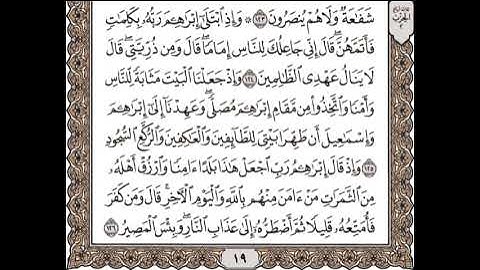 شَفَٰعَةٌ وَلَا هُمْ يُنصَرُونَ ١٢٣ ۞ وَإِذِ ٱبْتَلَىٰٓ إِبْرَٰهِـۧمَ رَبُّهُۥ بِكَلِمَٰتٍ
فَأَتَمَّهُنَّ ۖ قَالَ إِنِّى جَاعِلُكَ لِلنَّاسِ إِمَامًا ۖ قَالَ وَمِن ذُرِّيَّتِى ۖ قَالَ
لَا يَنَالُ عَهْدِى ٱلظَّٰلِمِينَ ١٢٤ وَإِذْ جَعَلْنَا ٱلْبَيْتَ مَثَابَةً لِّلنَّاسِ
وَأَمْنًا وَٱتَّخِذُوا۟ مِن مَّقَامِ إِبْرَٰهِـۧمَ مُصَلًّى ۖ وَعَهِدْنَآ إِلَىٰٓ إِبْرَٰهِـۧمَ
وَإِسْمَٰعِيلَ أَن طَهِّرَا بَيْتِىَ لِلطَّآئِفِينَ وَٱلْعَٰكِفِينَ وَٱلرُّكَّعِ ٱلسُّجُودِ
١٢٥ وَإِذْ قَالَ إِبْرَٰهِـۧمُ رَبِّ ٱجْعَلْ هَٰذَا بَلَدًا ءَامِنًا وَٱرْزُقْ أَهْلَهُۥ
مِنَ ٱلثَّمَرَٰتِ مَنْ ءَامَنَ مِنْهُم بِٱللَّهِ وَٱلْيَوْمِ ٱلْءَاخِرِ ۖ قَالَ وَمَن كَفَرَ
فَأُمَتِّعُهُۥ قَلِيلًا ثُمَّ أَضْطَرُّهُۥٓ إِلَىٰ عَذَابِ ٱلنَّارِ ۖ وَبِئْسَ ٱلْمَصِيرُ ١٢٦
١٩